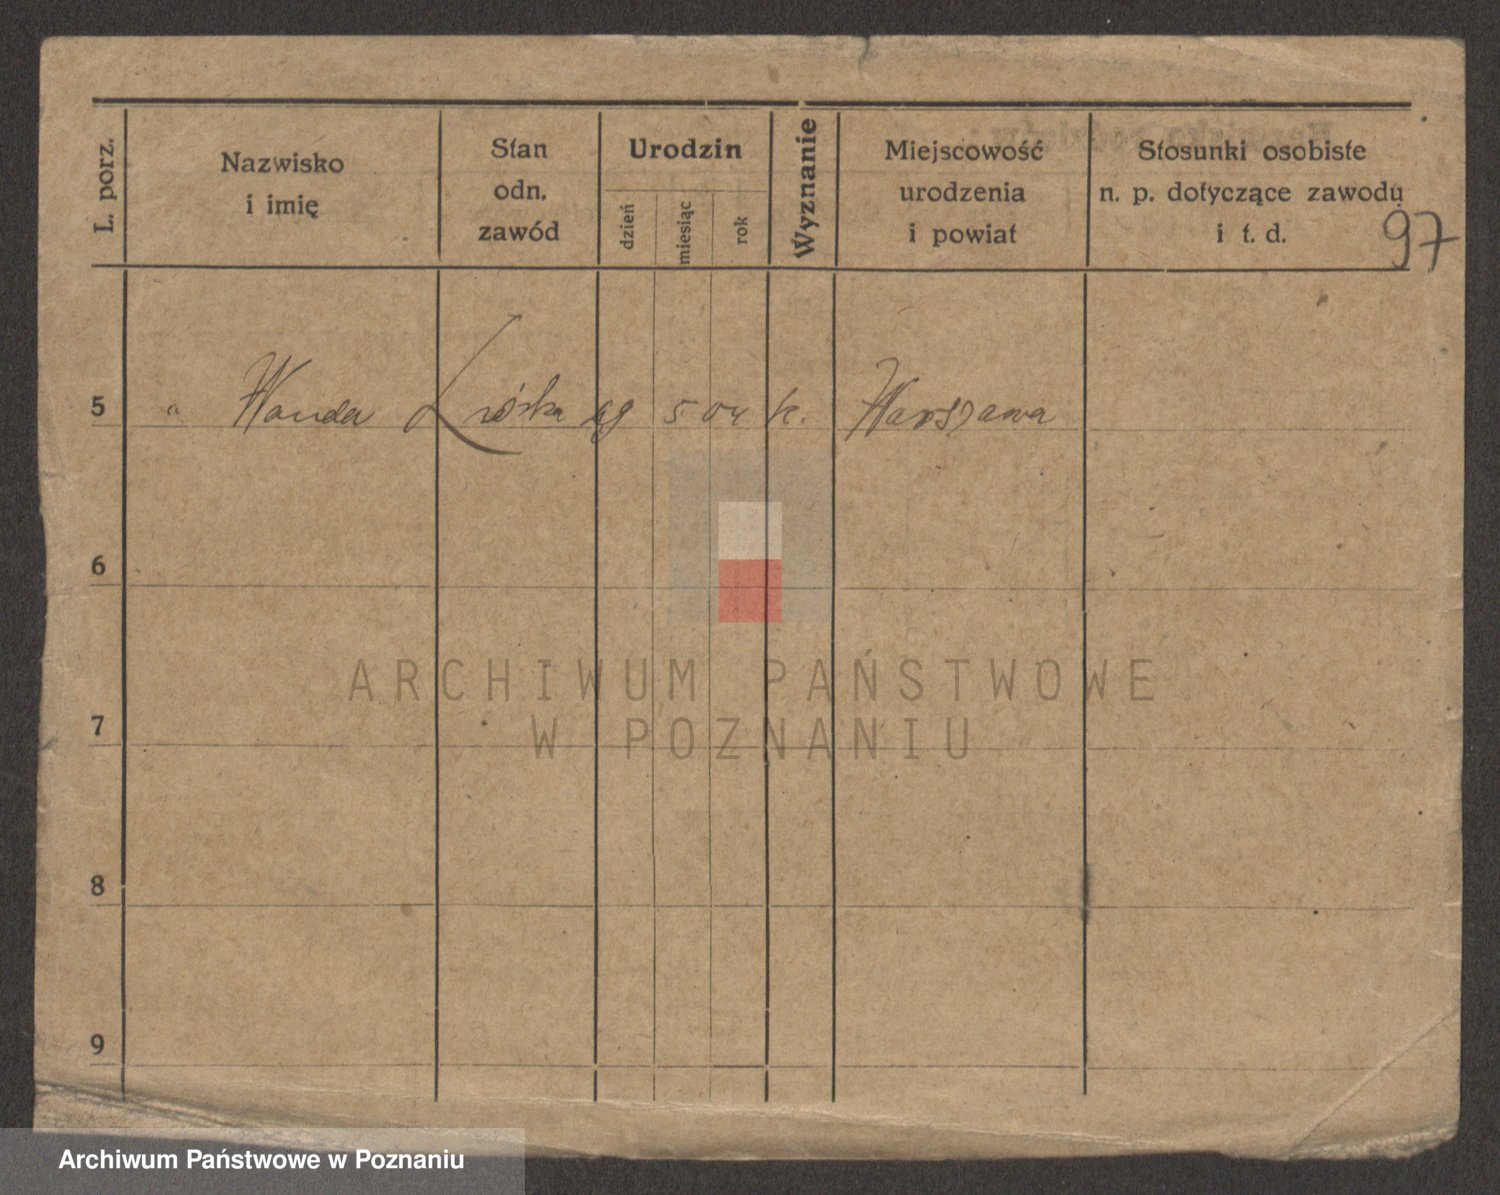 L. porz.
Nazwisko
i imię
Stan
odn.
zawód
Urodzin
dzień
miesiąc
rok
Wyznanie
Miejscowość
urodzenia
i powiat
Stosunki osobiste
n. p. dotyczące zawodu
i t. d.
97
5 " Wanda córka 5 04 k. Warszawa
6
7
8
9
ARCHIWUM PAŃSTWOWE
W POZNANIU
Archiwum Państwowe w Poznaniu